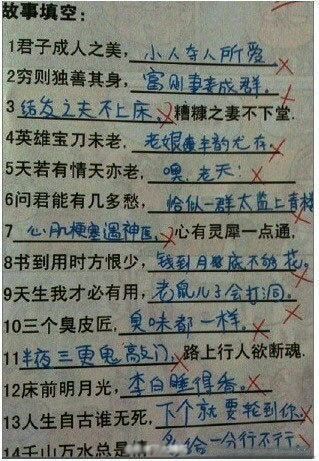 故事填空:
1君子成人之美,小人夺人所爱.
2穷则独善其身,富则妻妾成群.
3结发之夫不上床,糟糠之妻不下堂.
4英雄宝刀未老,老娘丰韵尤存.
5天若有情天亦老,噢,老天:
6问君能有几多愁,恰似一群太监上青楼
7心肌梗塞遇神医,心有灵犀一点通,
8书到用时方恨少,钱到月底不够花.
9天生我才必有用,老鼠儿子会打洞.
10三个臭皮匠,臭味都一样.
11半夜三更鬼敲门,路上行人欲断魂.
12床前明月光,李白睡得香.
13人生自古谁无死,下个就要轮到你.
14千山万水总是情 多给一分行不行.